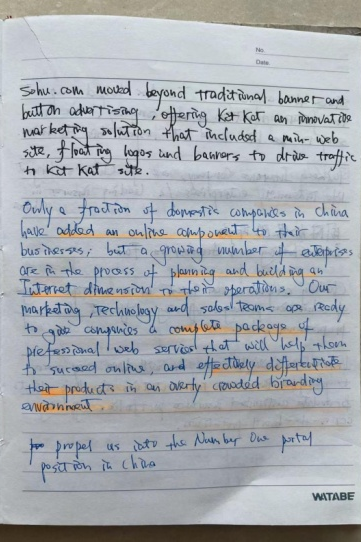 No.
Date
Sohu.com moved beyond traditional banner and
button advertising, offering Kit Kat an innovative
marketing solution that included a min-web
site, floating logos and banners to drive traffic
to Kit Kat site.
Only a fraction of domestic companies in China
have added an online component to their
businesses, but a growing number of enterprises
are in the process of planning and building an
Internet dimension to their operations. Our
marketing, technology and sales teams are ready
to give companies a complete package of
professional web servies that will help them
to succeed online, and effectively differentiate
their products in an overly crowded branding
environment.
propel us into the Number One portal
position in China
WATABE